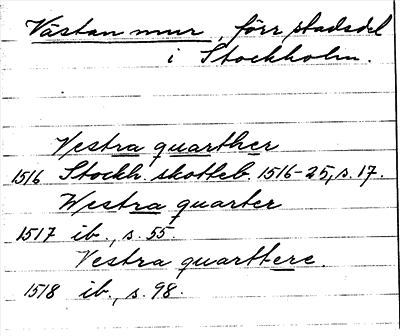 Västan mur, förr stadsdel
i Stockholm.
Vestra quarther
1516 Stockh. skotteb. 1516-25, s. 17.
Westra quarter
1517 ib., s. 55.
Vestra quarttere.
1518 ib., s. 98.